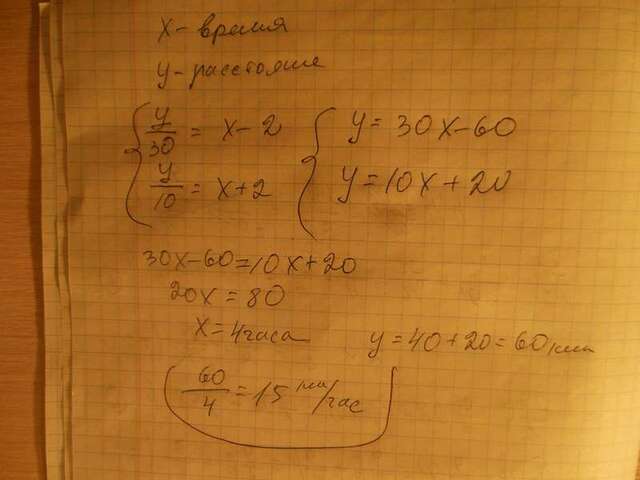 x - время
y - расстояние
y/30 = x - 2
y/10 = x + 2
y = 30x - 60
y = 10x + 20
30x - 60 = 10x + 20
20x = 80
x = 4 часа
y = 40 + 20 = 60 км
60/4 = 15 км/час